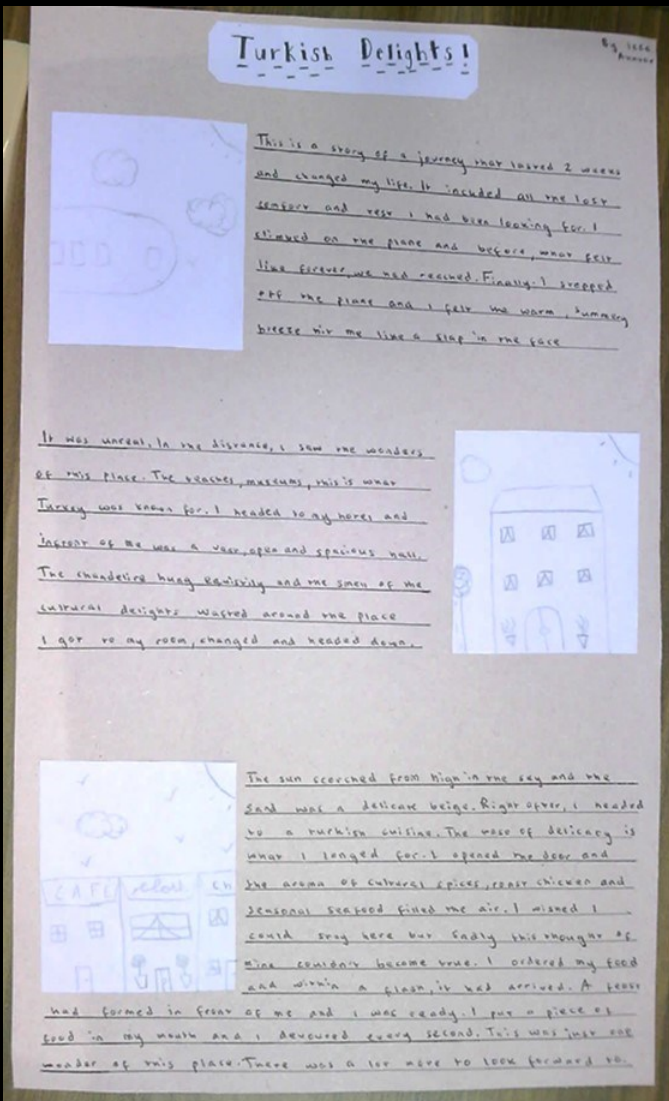 Turkish Delights!
By Issa
This is a story of a journey that lasted 2 weeks
and changed my life. It included all the lost
comfort and rest I had been looking for. I
climbed on the plane and before, what felt
like forever, we had reached. Finally. I stepped
off the plane and I felt the warm, summery
breeze hit me like a slap in the face
It was unreal. In the distance, I saw the wonders
of this place. The beaches, museums, this is what
Turkey was known for. I headed to my hotel and
infront of me was a vast, open and spacious hall.
The chandelire hung equisitly and the smell of the
cultural delights wafted around the place
I got to my room, changed and headed down.
The sun scorched from high in the sky and the
sand was a delicate beige. Right after, I headed
to a turkish cuisine. The taste of delicacy is
what I longed for. I opened the door and
the aroma of cultural spices, roast chicken and
seasonal seafood filled the air. I wished I
could stay here but sadly this thought of
mine couldn't become true. I ordered my food
and within a flash, it had arrived. A feast
had formed in front of me and I was ready. I put a piece of
food in my mouth and I devoured every second. This was just one
wonder of this place. There was a lot more to look forward to.
CAFE